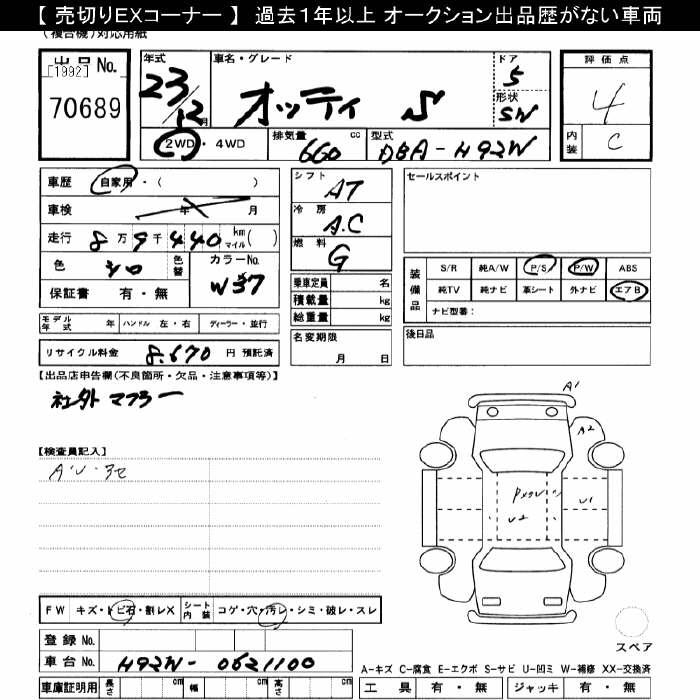 【 売切りEXコーナー 】 過去1年以上 オークション出品歴がない車両
(複合機)対応用紙
出品 No.
[1992]
70689
年式 車名・グレード ドア
23/12月 オッティ S 5
形状
SW
2WD・4WD 排気量 660 cc 型式 DBA-H92W
評価点
4
内装 C
車歴 自家用・( )
車検 年 月
走行 8万9千440 km マイル( )
色 シロ 色替 カラーNo. W37
保証書 有・無
シフト AT
冷房 A.C
燃料 G
乗車定員 名
積載量 kg
総重量 kg
名変期限
月 日
セールスポイント
装備品 S/R 純A/W P/S P/W ABS
純TV 純ナビ 革シート 外ナビ エアB
ナビ型番:
後日品
モデル年式 年 ハンドル 左・右 ディーラー・並行
リサイクル料金 8,670 円 預託済
【出品店申告欄(不良箇所・欠品・注意事項等)】
社外マフラー
【検査員記入】
A'
A2
U1
U2
FW キズ・トビ石・割レX シート内装 コゲ・穴・汚レ・シミ・破レ・スレ
登録 No.
車台 No. H92W-0621100
スペア
A-キズ C-腐食 E-エクボ S-サビ U-凹ミ W-補修 XX-交換済
車庫証明用 長さ cm 幅 cm 高さ cm 工具 有・無 ジャッキ 有・無